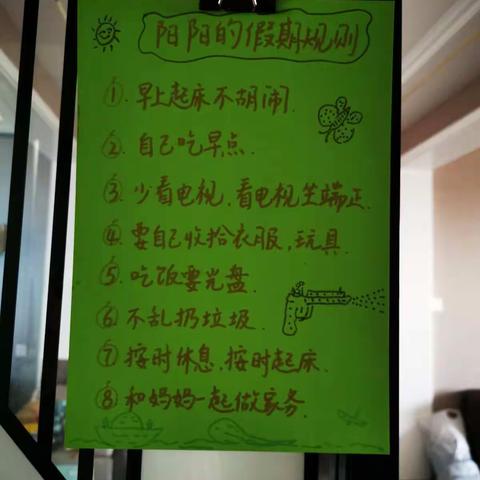 阳阳的假期规则
①.早上起床不胡闹.
②.自己吃早点.
③.少看电视.看电视坐端正.
④.要自己收拾衣服,玩具.
⑤.吃饭要光盘.
⑥.不乱扔垃圾.
⑦.按时休息.按时起床.
⑧.和妈妈一起做家务.